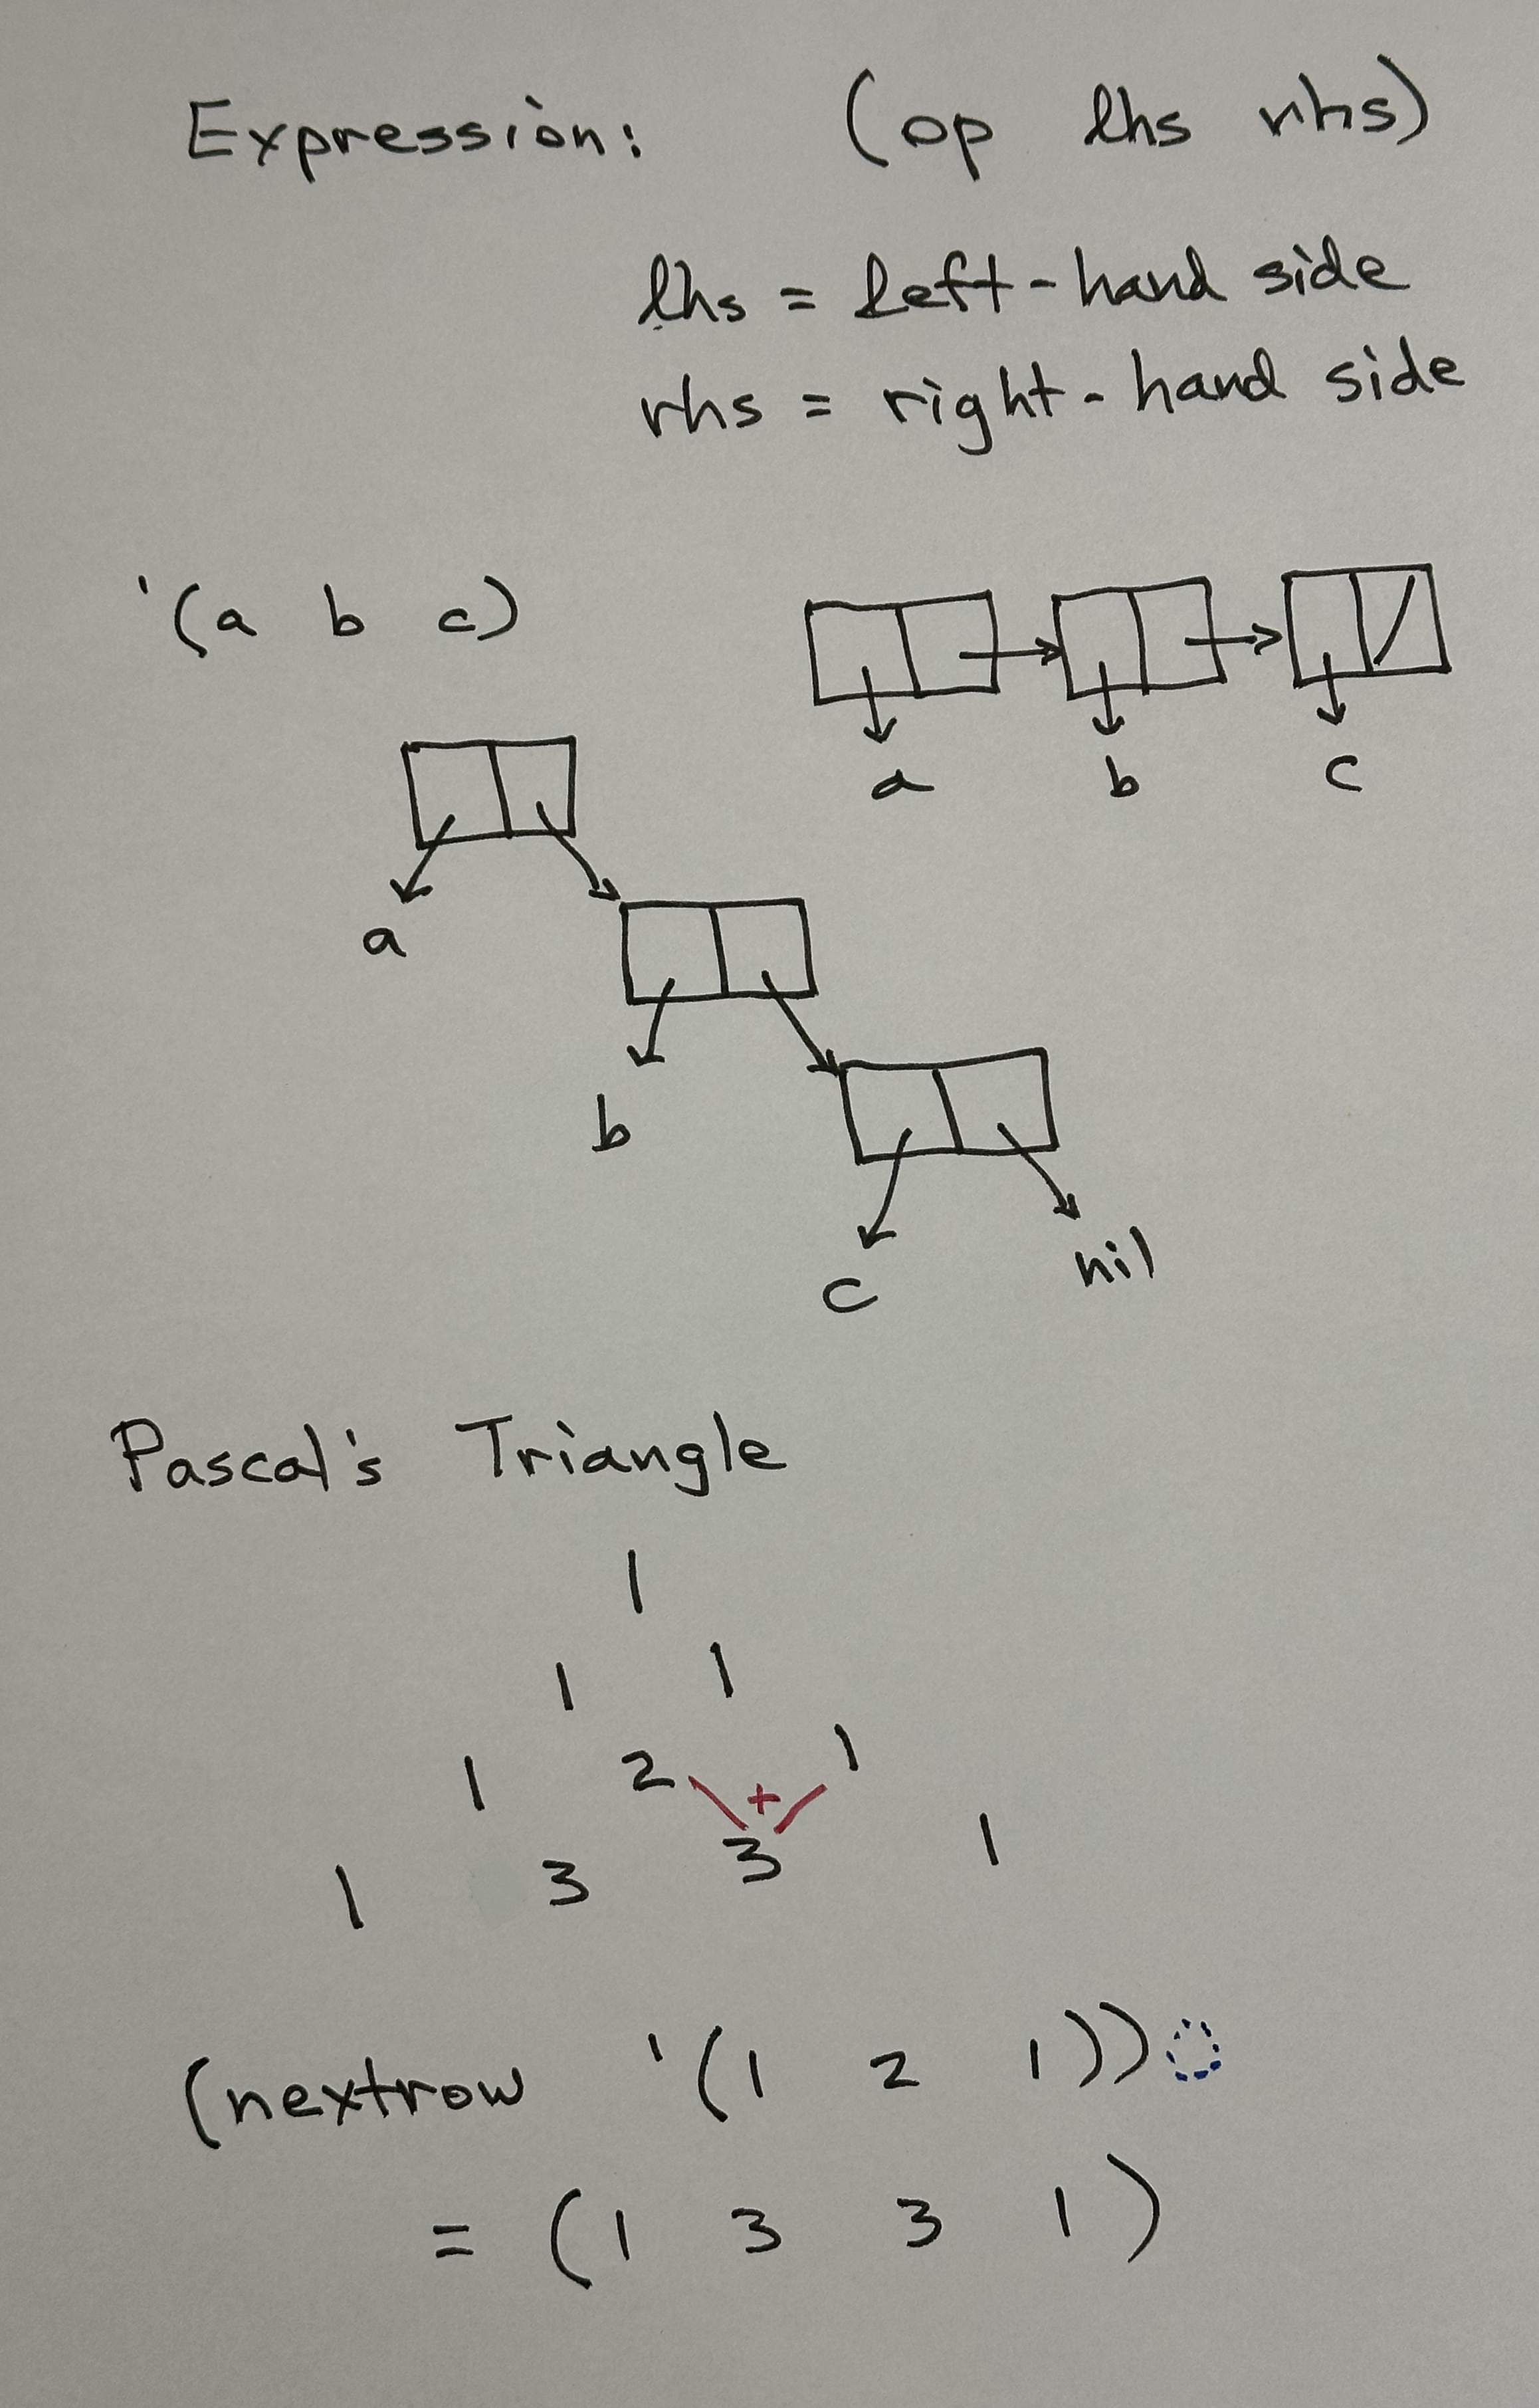 Expression: (op lhs rhs)
lhs = left-hand side
rhs = right-hand side
'(a b c)
a b c
a
b
c nil
Pascal's Triangle
1
1 1
1 2 + 1
1 3 3 1
(nextrow '(1 2 1))
= (1 3 3 1)